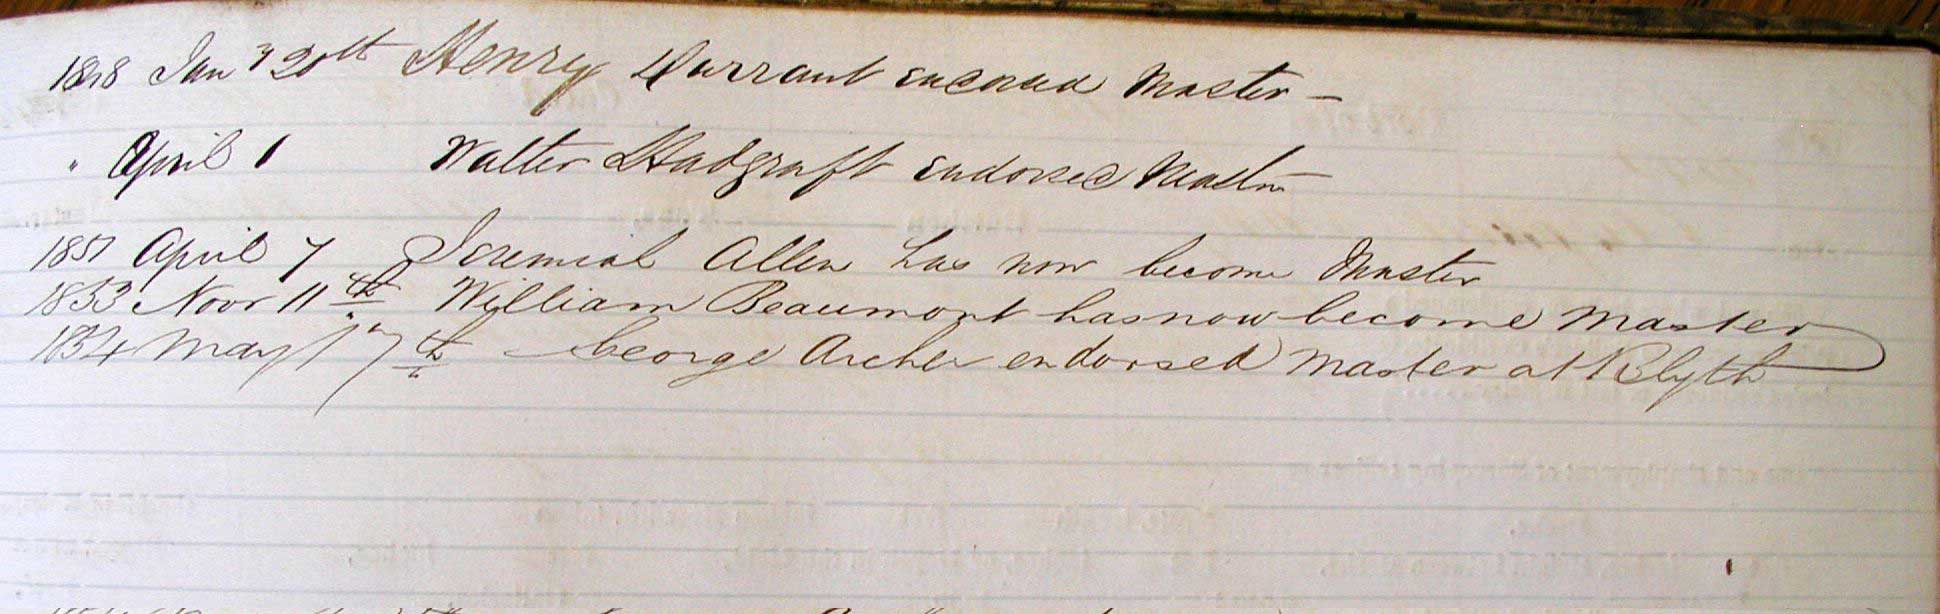 1848 Jany 20th Henry Durrant endorsed Master –
" April 1 Walter Hadgraft endorsed Master
1851 April 7 Jeremiah Allen has now become Master
1853 Novr 11th William Beaumont has now become Master
1854 May 17th George Archer endorsed Master at Blyth